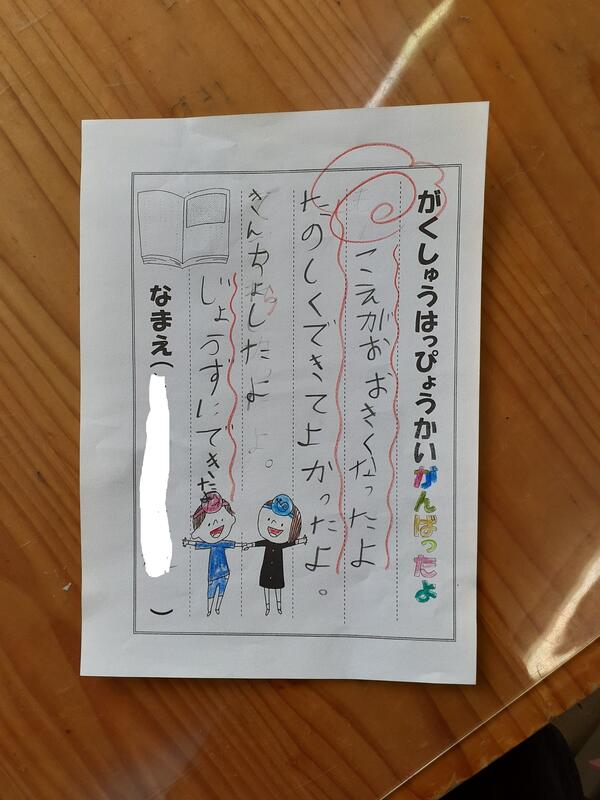 がくしゅうはっぴょうかいがんばったよ
こえがおおきくなったよ
たのしくできてよかったよ。
きんちょうしたよ。
じょうずにできたよ
なまえ（　）